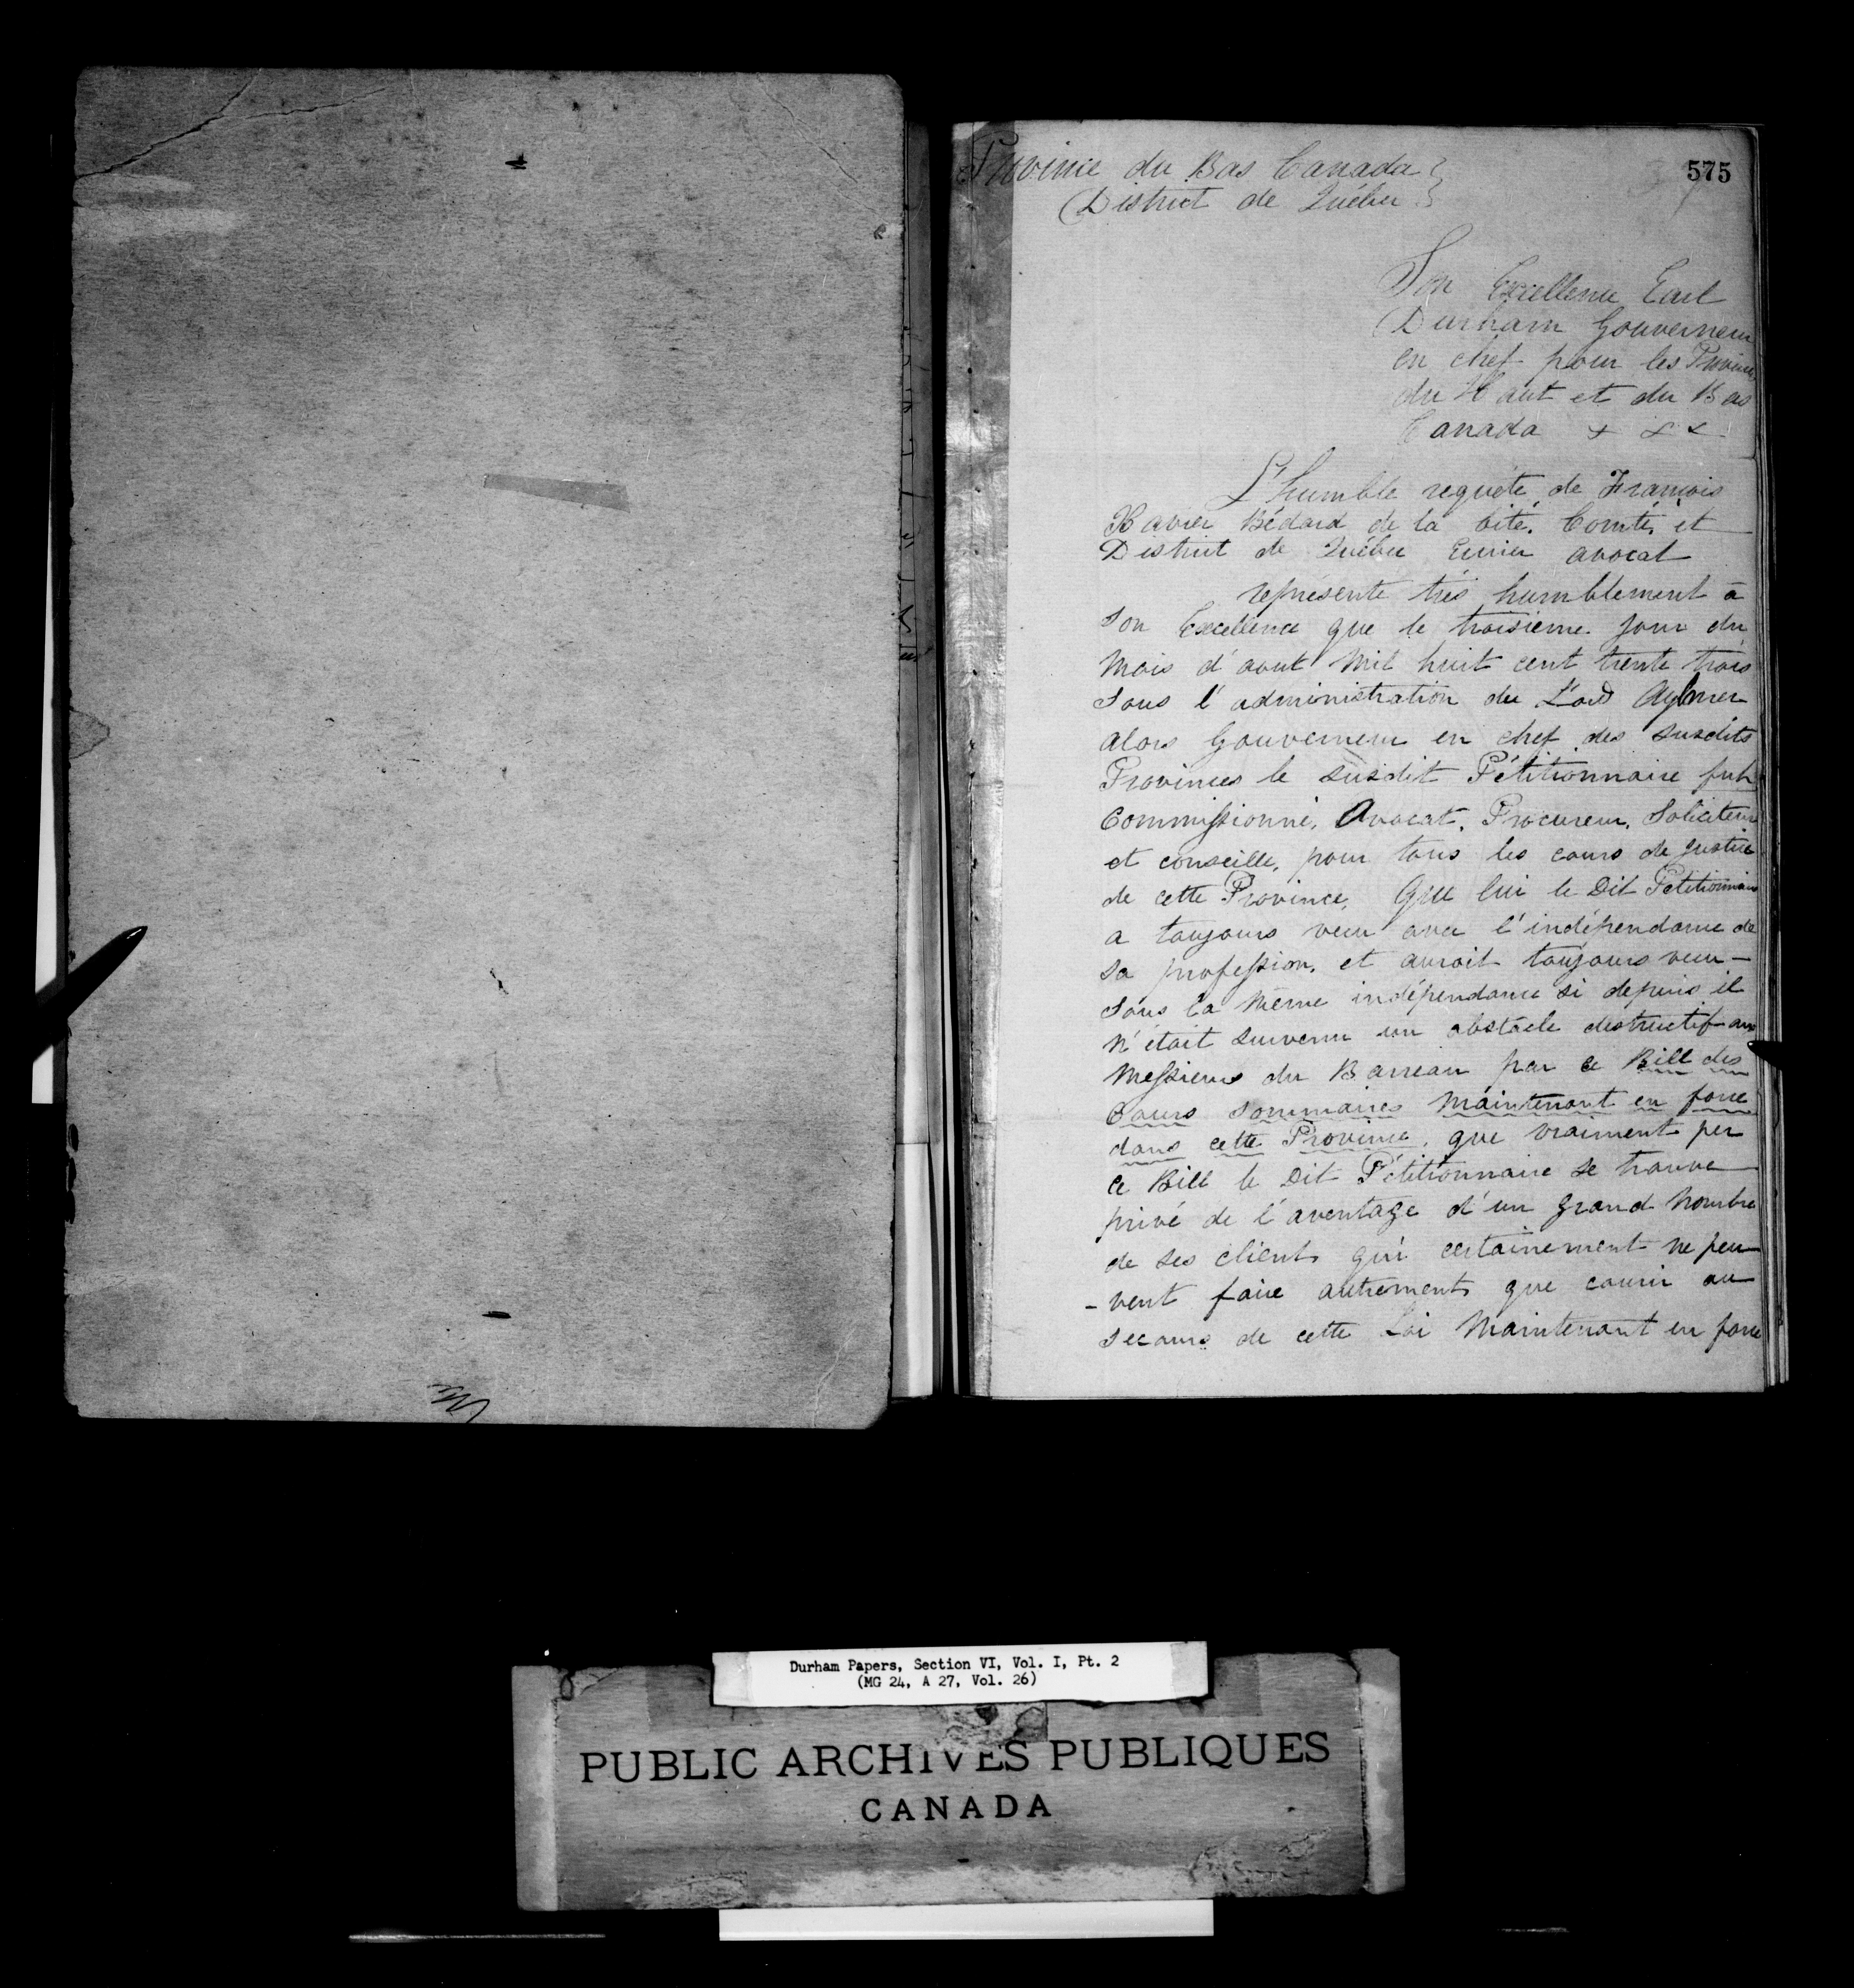 575
Province du Bas Canada }
District de Québec }
Son Excellence Earl
Durham Gouverneur
en chef pour les Provinces
du Haut et du Bas
Canada & & &
L'humble requête de François
Xavier Bédard de la Cité, Comté, et
District de Québec Ecuier avocat
représente très humblement à
Son Excellence que le troisième jour du
mois d'aout Mil huit cent trente trois
sous l'administration du Lord Aylmer
alors Gouverneur en chef des susdits
Provinces le susdit Pétitionnaire fut
Commissionné, Avocat, Procureur, Soliciteur
et conseille, pour tous les cours de Justice
de cette Province, Que lui le Dit Petitionnaire
a toujours vecu avec l'indépendance de
sa profession, et auroit toujours vecu —
sous la même indépendance si depuis il
n'était survenu un obstacle destructif aux
Messieurs du Barreau par ce Bill des
Cours Sommaires maintenant en force
dans cette Province, que vraiment per
ce Bill le Dit Pétitionnaire se trouve
privé de l'aventage d'un grand Nombre
de ses clients qui certainement ne peu-
-vent faire autrement que courir au
secours de cette Loi Maintenant en force
Durham Papers, Section VI, Vol. I, Pt. 2
(MG 24, A 27, Vol. 26)
PUBLIC ARCHIVES PUBLIQUES
CANADA